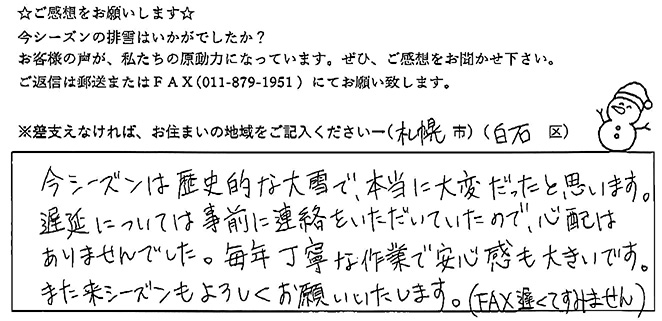 ☆ご感想をお願いします☆
今シーズンの排雪はいかがでしたか？
お客様の声が、私たちの原動力になっています。ぜひ、ご感想をお聞かせ下さい。
ご返信は郵送またはＦＡＸ(011-879-1951）にてお願い致します。
※差支えなければ、お住まいの地域をご記入くださいー(札幌 市）(白石 区）
今シーズンは歴史的な大雪で、本当に大変だったと思います。
遅延については事前に連絡をいただいていたので、心配は
ありませんでした。毎年丁寧な作業で安心感も大きいです。
また来シーズンもよろしくお願いいたします。(FAX遅くてすみません)